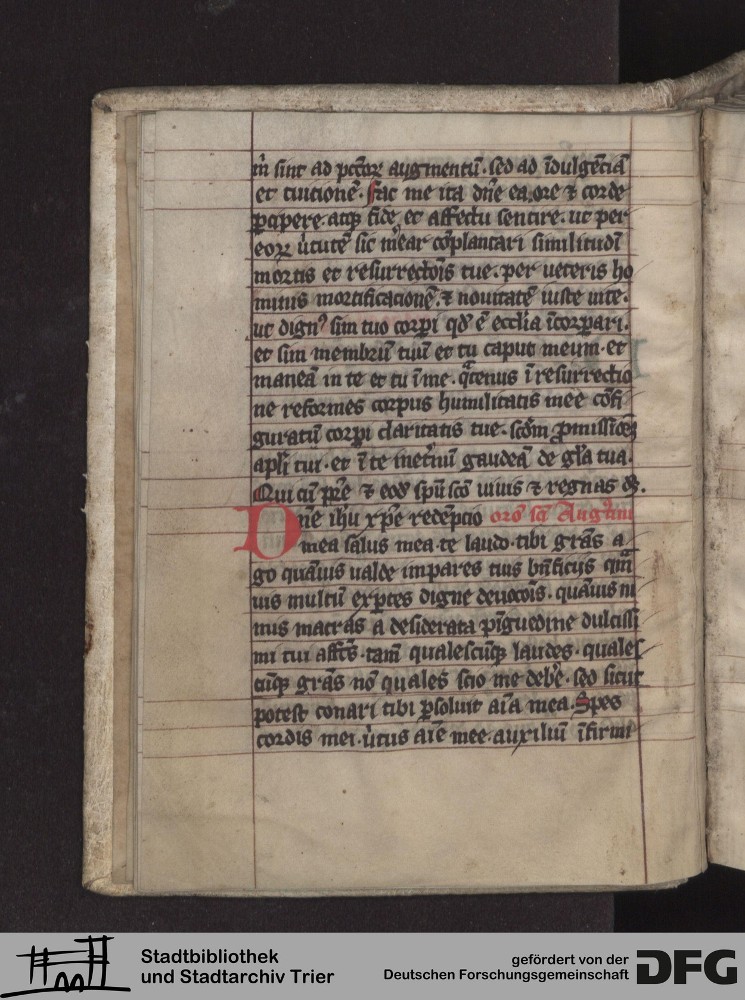 mͥ sint ad pctor̄ꝝ augmentū · sed ad īdulgēciā
et tuicionē · fac me ita dn̄e ea ore ⁊ corde
ꝑcipere atqꝫ fide et affectu sentire · ut per
eoꝝ ũtutē sic mear cōplantari similitudī
mortis et resurrectōis tue · per ueteris ho
minis mortificacionē · ⁊ nouitatē iuste uite ·
ut dignꝰ sim tuo corꝑi qd̄ ē eccl̄ia īcorꝑari ·
et sim membrū tuū et tu caput meum · et
maneā in te et tu ī me · qͣtenus ī resurrectio
ne reformes corpus humilitatis mee cōfi
guratū corꝑi claritatis tue · scd̄m ꝓmissioēꝫ
apl̄i tui · et ī te inet̾nū gaudeā de gl̄a tua ·
Qui cū pr̄e ⁊ eod̄ spū sc̄o uiuis ⁊ regnas d̄s ·
Dn̄e ih̄u xp̄e redēpcio oro᷎ sc̄i Augͧtini
mea salus mea · te laudo · tibi gr̄as a
go quāuis ualde impares tuis bn̄ficijs qm̄
uis multū exꝑtes digne deuocōis · quāuis mi
nus macras a desiderata pīguedine dulcissi
mi tui affc̄s · tam̄ qualescūqꝫ laudes · quales
cūqꝫ gr̄as nō quales scio me deb̾e · sed sicut
potest conari tibi ꝑsoluit aīa mea · Spes
cordis mei · ũtus aīe mee · auxiliū īfirmi
Stadtbibliothek
und Stadtarchiv Trier
gefördert von der
Deutschen Forschungsgemeinschaft
DFG